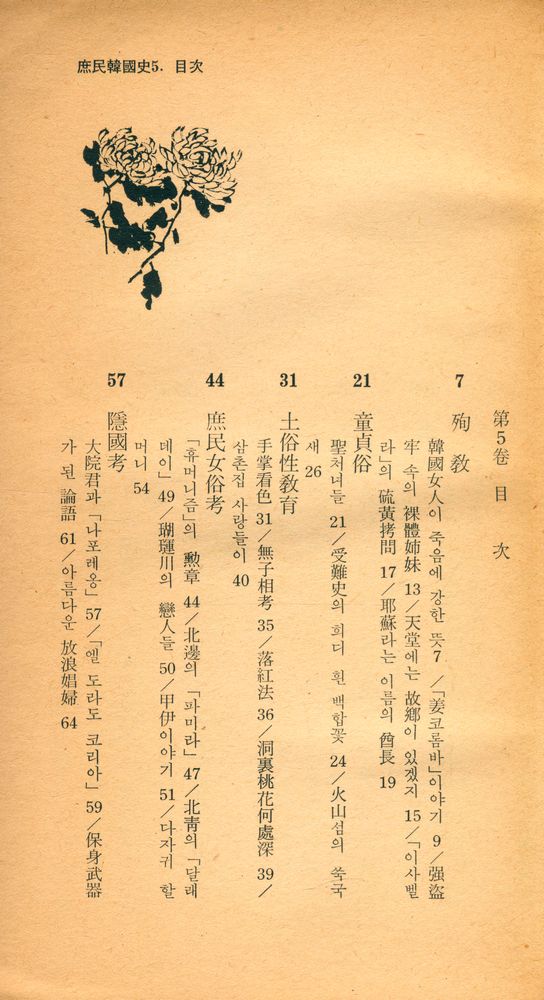 庶民韓國史5. 目次
第5卷 目 次
7 殉 敎
韓國女人이 죽음에 강한 뜻 7 /「姜코롬바」이야기 9／强盜
牢 속의 裸體姉妹 13／天堂에는 故鄕이 있겠지 15／「이사벨
라」의 硫黃拷問 17／耶蘇라는 이름의 酋長 19
21 童貞俗
聖처녀들 21／受難史의 희디 흰 백합꽃 24／火山섬의 쑥국
새 26
31 土俗性敎育
手掌看色 31／無子相考 35／落紅法 36／洞裏桃花何處深 39／
삼촌집 사랑들이 40
44 庶民女俗考
「휴머니즘」의 勲章 44／北邊의「파미라」47／北靑의「달래
데이」49／瑚璉川의 戀人들 50／甲伊이야기 51／다자귀 할
머니 54
57 隱國考
大院君과「나포레옹」57／「엘 도라도 코리아」59／保身武器
가 된 論語 61／아름다운 放浪娼婦 64